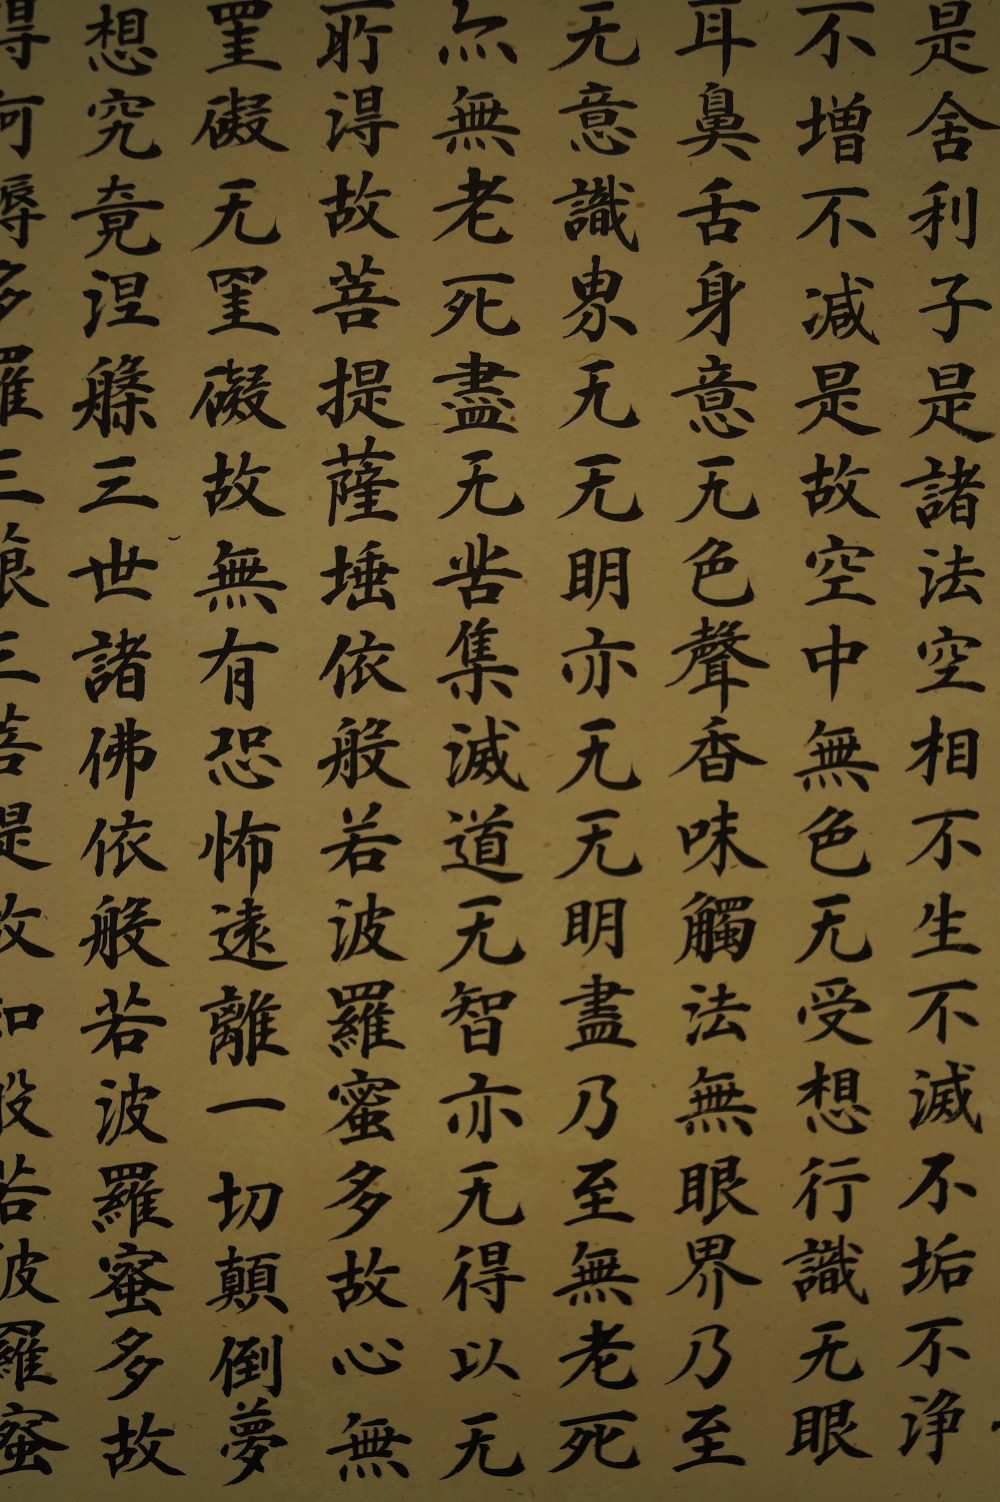 是舍利子是諸法空相不生不滅不垢不净
不增不減是故空中無色无受想行識无眼
耳鼻舌身意无色聲香味觸法無眼界乃至
无意識界无无明亦无无明盡乃至無老死
亦無老死盡无苦集滅道无智亦无得以无
所淂故菩提薩埵依般若波羅蜜多故心無
罣礙无罣礙故無有恐怖遠離一切顛倒夢
想究竟涅槃三世諸佛依般若波羅蜜多故
得阿耨多羅三藐三菩提故知般若波羅蜜